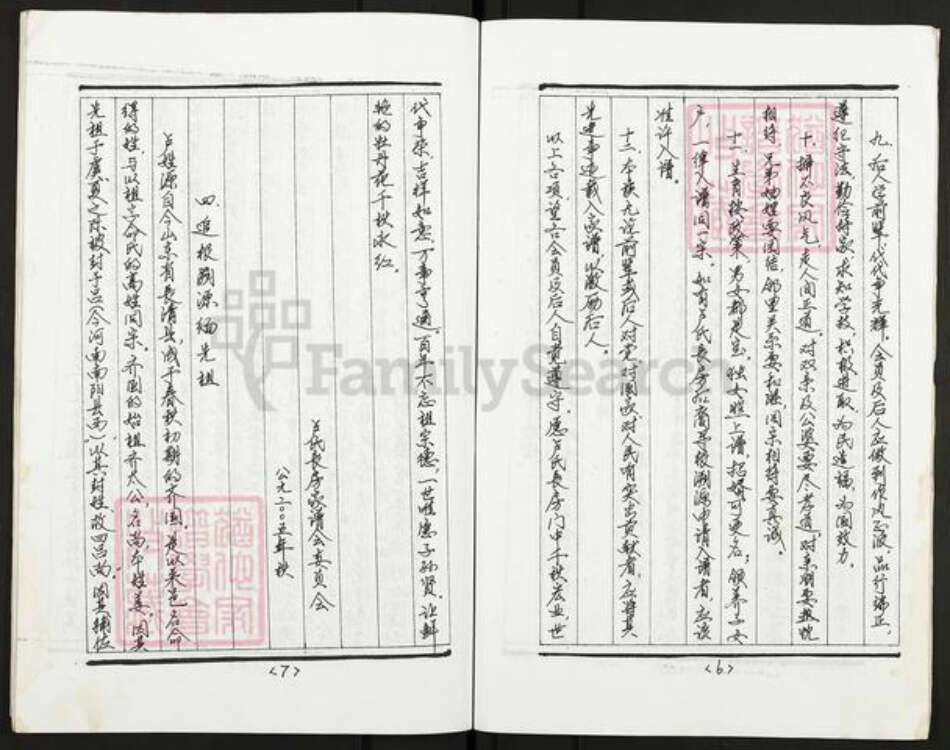 九、后人学前辈，代代争光辉。会员及后人应做到作风正派，品行端正，
遵纪守法，勤俭持家，求知学技，积极进取，为民造福，为国效力。
十、振家族风气，走人间正道。对双亲及公婆要尽孝道，对亲朋要热忱
相待，兄弟妯娌要团结，邻里关系要和谐，同宗相待要真诚。
十一、生育按政策，男女都是宝。独女照上谱，招婿可更名；领养子女
户，一律入谱同一宗。如有卢氏长房后裔寻根溯源申请入谱者，应该
准许入谱。
十二、本族九泛前辈或后人对党、对国家、对人民有突出贡献者，应将其
先进事迹载入家谱，以激励后人。
以上各项，望各会员及后人自觉遵守。愿卢氏长房门中千秋宏业，世
<6>
代申荣，吉祥如意，万事亨通。百年不忘祖宗德，一世惟愿子孙贤。让鲜
艳的牡丹花千秋永红。
卢氏长房家谱会委员会
公元二00五年秋
四、追根溯源缅先祖
卢姓源自今山东省长清县，成于春秋初期的齐国，是以采邑名命
得的姓，与以祖字命氏的高姓同宗。齐国的始祖齐太公，名尚，本姓姜，因其
先祖于虞夏之际被封于吕（今河南南阳县西），以其封姓故曰吕尚。因其辅佐
<7>
FamilySearch